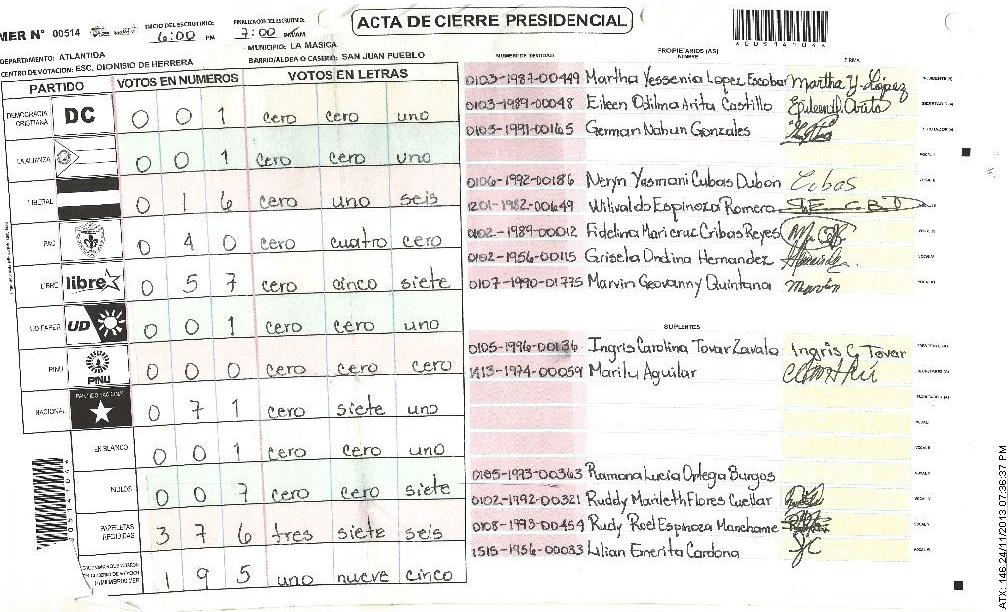 ACTA DE CIERRE PRESIDENCIAL
MER N° 00514
INICIO DEL ESCRUTINIO: 6:00 PM
FINALIZACION DEL ESCRUTINIO: 7:00 PM/AM
DEPARTAMENTO: ATLANTIDA
MUNICIPIO: LA MASICA
CENTRO DE VOTACION: ESC. DIONISIO DE HERRERA
BARRIO/ALDEA O CASERIO: SAN JUAN PUEBLO
PARTIDO VOTOS EN NUMEROS VOTOS EN LETRAS
DEMOCRACIA CRISTIANA DC 0 0 1 cero cero uno
LA ALIANZA 0 0 1 cero cero uno
LIBERAL 0 1 6 cero uno seis
PAC 0 4 0 cero cuatro cero
LIBRE libre 0 5 7 cero cinco siete
UD FAPER UD 0 0 1 cero cero uno
PINU PINU 0 0 0 cero cero cero
NACIONAL PARTIDO NACIONAL 0 7 1 cero siete uno
EN BLANCO 0 0 1 cero cero uno
NULOS 0 0 7 cero cero siete
PAPELETAS RECIBIDAS 3 7 6 tres siete seis
1 9 5 uno nueve cinco
NUMERO DE IDENTIDAD PROPIETARIOS (AS) NOMBRE FIRMA
0103-1987-00449 Martha Yessenia Lopez Escobar Martha Y. López
0103-1989-00048 Eileen Odilma Arita Castillo
0105-1991-00165 German Nahun Gonzales
0106-1992-00186 Neryn Yasmani Cubas Dubon Cubas
1201-1982-00649 Wilivaldo Espinoza Romero
0102-1989-00012 Fidelina Maricruz Cribas Reyes
0102-1956-00115 Grisela Ondina Hernandez
0107-1990-01775 Marvin Geovanny Quintana Marvin
SUPLENTES
0105-1996-00136 Ingris Carolina Tovar Zavala Ingris C Tovar
1413-1974-00059 Marilu Aguilar
0105-1973-00363 Ramona Lucia Ortega Burgos
0102-1992-00321 Ruddy Marileth Flores Cuellar
0108-1993-00454 Rudy Roel Espinoza Manchame
1515-1956-00033 Lilian Emerita Cardona
ATX: 146.24/11/2013 07:36:37 PM